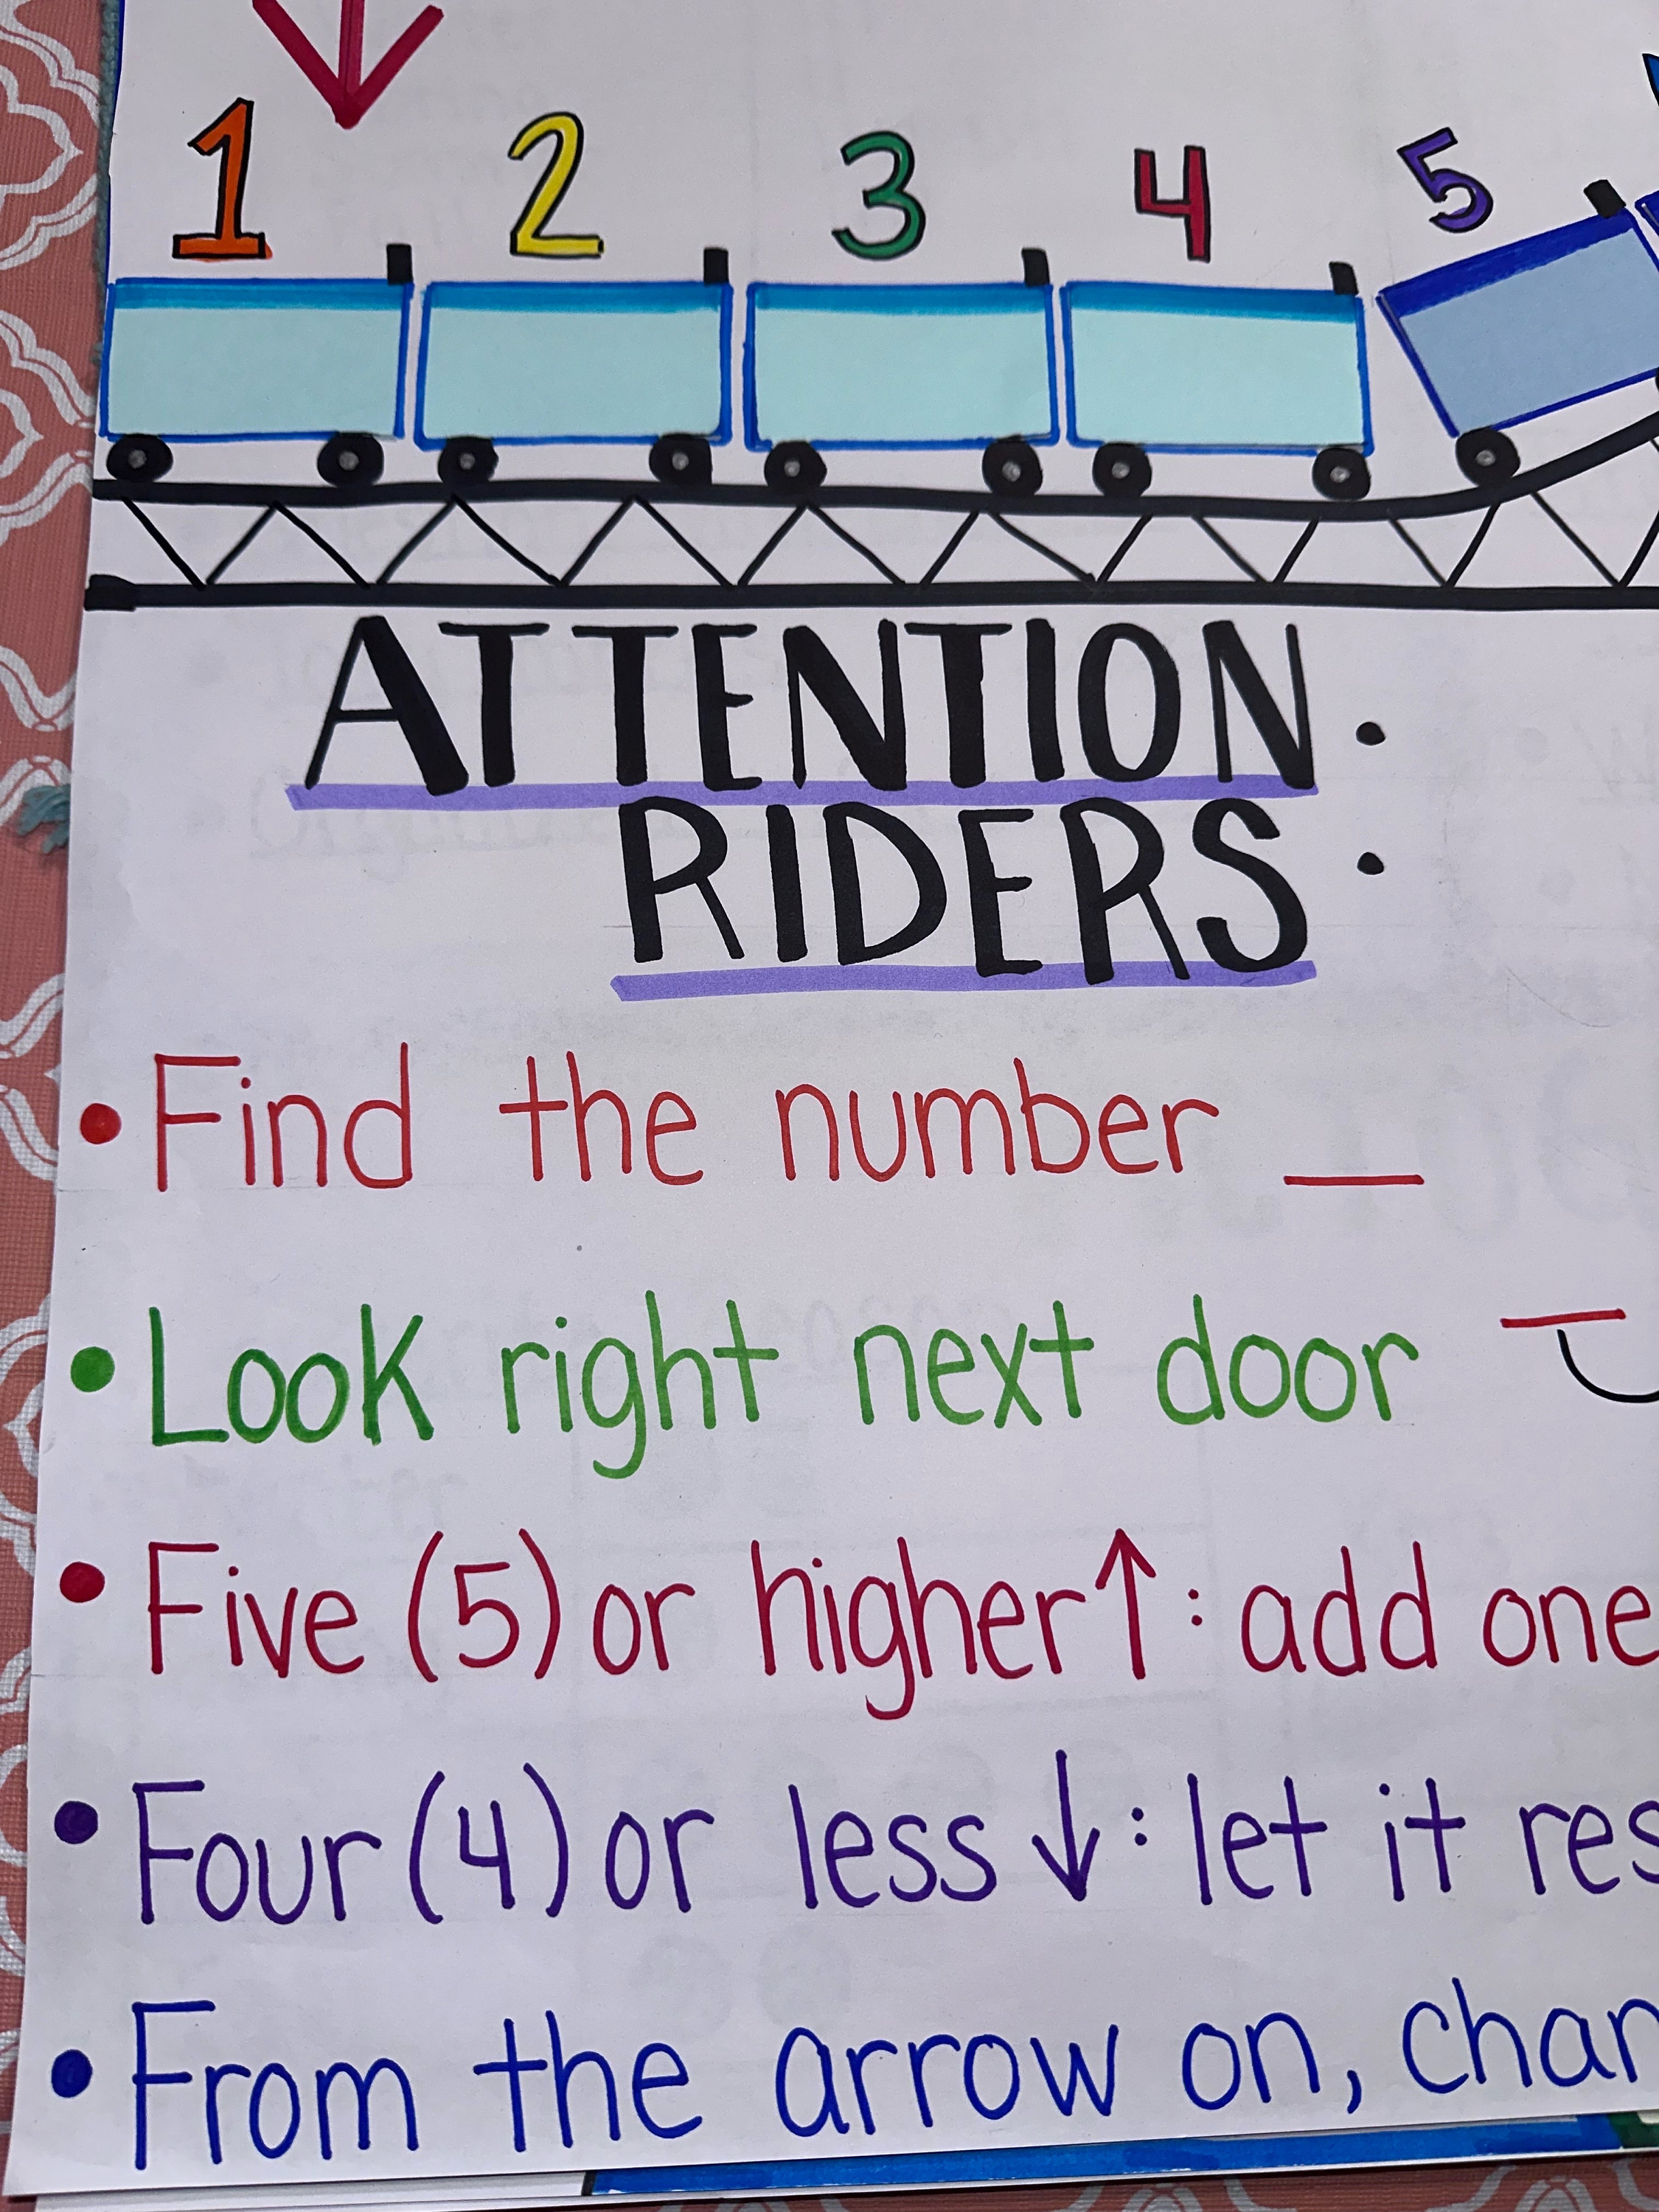 1 2 3 4 5
ATTENTION :
RIDERS
• Find the number __
• Look right next door __
• Five (5) or higher ↑ : add one
• Four (4) or less ↓ : let it res
• From the arrow on, chan